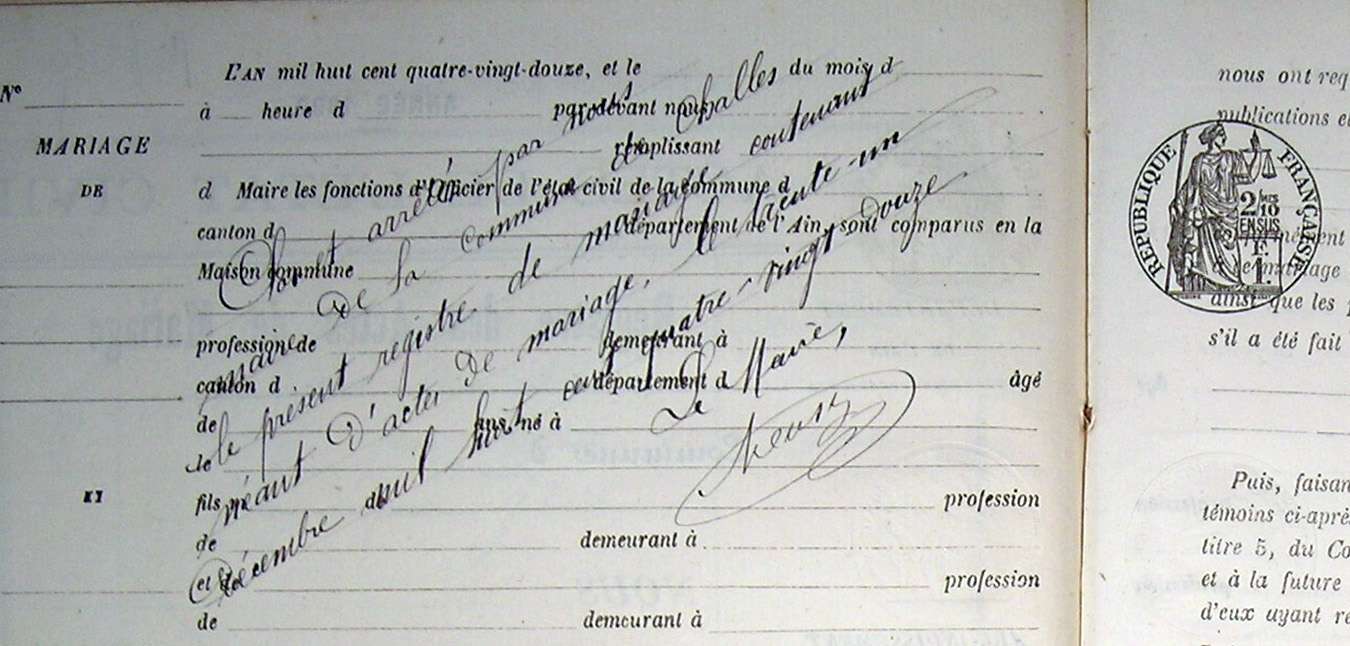 L'AN mil huit cent quatre-vingt-douze, et le du mois d
à heure d par devant nous
remplissant
d Maire les fonctions d'Officier de l'état civil de la commune d
canton d département de l'Ain, sont comparus en la
Maison commune
profession de demeurant à
canton d département d âgé
de ans, né à
le
fils d profession
de demeurant à
et d profession
de demeurant à
N°
MARIAGE
DE
ET
Clos et arrêté par nous
maire de la commune de Challes
le présent registre de mariage contenant
néant d'actes de mariage, le trente-un
décembre mil huit cent quatre-vingt douze.
Le Maire,
RÉPUBLIQUE FRANÇAISE
2/10 EN SUS
1 F.
nous ont req
publications e
ainsi que les p
s'il a été fait
Puis, faisan
témoins ci-aprè
titre 5, du Co
et à la future
d'eux ayant re